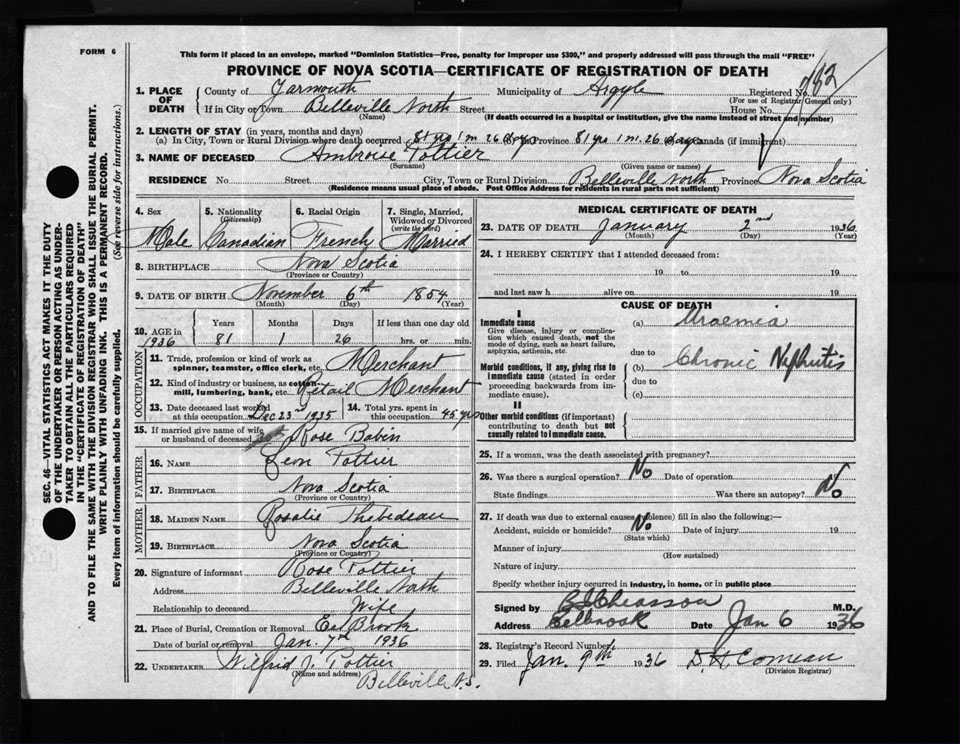 FORM 6
This form if placed in an envelope, marked "Dominion Statistics—Free, penalty for improper use $300," and properly addressed will pass through the mail "FREE"
PROVINCE OF NOVA SCOTIA—CERTIFICATE OF REGISTRATION OF DEATH
1. PLACE OF DEATH
County of Yarmouth Municipality of Argyle Registered No. 782
(For use of Registrar General only)
If in City or Town Belleville North Street House No.
(Name) (If death occurred in a hospital or institution, give the name instead of street and number)
2. LENGTH OF STAY (in years, months and days)
(a) In City, Town or Rural Division where death occurred 81 yrs 1 m 26 days (b) In Province 81 yrs 1 m. 26 days Canada (if immigrant)
3. NAME OF DECEASED Ambroise Pottier
(Surname) (Given name or names)
RESIDENCE No. Street City, Town or Rural Division Belleville North Province Nova Scotia
(Residence means usual place of abode. Post Office Address for residents in rural parts not sufficient)
SEC. 46—VITAL STATISTICS ACT MAKES IT THE DUTY
OF THE UNDERTAKER OR PERSON ACTING AS UNDER-
TAKER TO OBTAIN ALL THE PARTICULARS REQUIRED
IN THE "CERTIFICATE OF REGISTRATION OF DEATH"
AND TO FILE THE SAME WITH THE DIVISION REGISTRAR WHO SHALL ISSUE THE BURIAL PERMIT.
WRITE PLAINLY WITH UNFADING INK. THIS IS A PERMANENT RECORD.
Every item of information should be carefully supplied. (See reverse side for instructions.)
4. Sex Male
5. Nationality (Citizenship) Canadian
6. Racial Origin French
7. Single, Married, Widowed or Divorced (write the word) Married
8. BIRTHPLACE Nova Scotia
(Province or Country)
9. DATE OF BIRTH November 6th 1854
(Month) (Day) (Year)
10. AGE in 1936
Years Months Days If less than one day old
81 1 26 hrs. or min.
OCCUPATION
11. Trade, profession or kind of work as spinner, teamster, office clerk, etc. Merchant
12. Kind of industry or business, as cotton-mill, lumbering, bank, etc. Retail Merchant
13. Date deceased last worked at this occupation Dec 23 1935
14. Total yrs. spent in this occupation 45 yrs
15. If married give name of wife or husband of deceased Rose Babin
FATHER
16. NAME Leon Pottier
17. BIRTHPLACE Nova Scotia
(Province or Country)
MOTHER
18. MAIDEN NAME Rosalie Thibedeau
19. BIRTHPLACE Nova Scotia
(Province or Country)
20. Signature of informant Rose Pottier
Address Belleville North
Relationship to deceased Wife
21. Place of Burial, Cremation or Removal Eel Brook
Date of burial or removal Jan. 7th 1936
22. UNDERTAKER Wilfrid J. Pottier
(Name and address)
Belleville N.S.
MEDICAL CERTIFICATE OF DEATH
23. DATE OF DEATH January 2nd 1936
(Month) (Day) (Year)
24. I HEREBY CERTIFY that I attended deceased from:
19 to 19
and last saw h alive on 19
CAUSE OF DEATH
I
Immediate cause
Give disease, injury or complication which caused death, not the mode of dying, such as heart failure, asphyxia, asthenia, etc.
(a) Uraemia
due to
Morbid conditions, if any, giving rise to immediate cause (stated in order proceeding backwards from immediate cause).
(b) Chronic Nephritis
due to
(c)
II
Other morbid conditions (if important) contributing to death but not causally related to immediate cause.
25. If a woman, was the death associated with pregnancy?
26. Was there a surgical operation? No Date of operation
State findings Was there an autopsy? No
27. If death was due to external causes (violence) fill in also the following:—
Accident, suicide or homicide? No Date of injury 19
(State which)
Manner of injury
(How sustained)
Nature of injury
Specify whether injury occurred in industry, in home, or in public place
Signed by Chiasson M.D.
Address Eelbrook Date Jan 6 1936
28. Registrar's Record Number
29. Filed Jan. 9th 1936 D H Comeau
(Division Registrar)